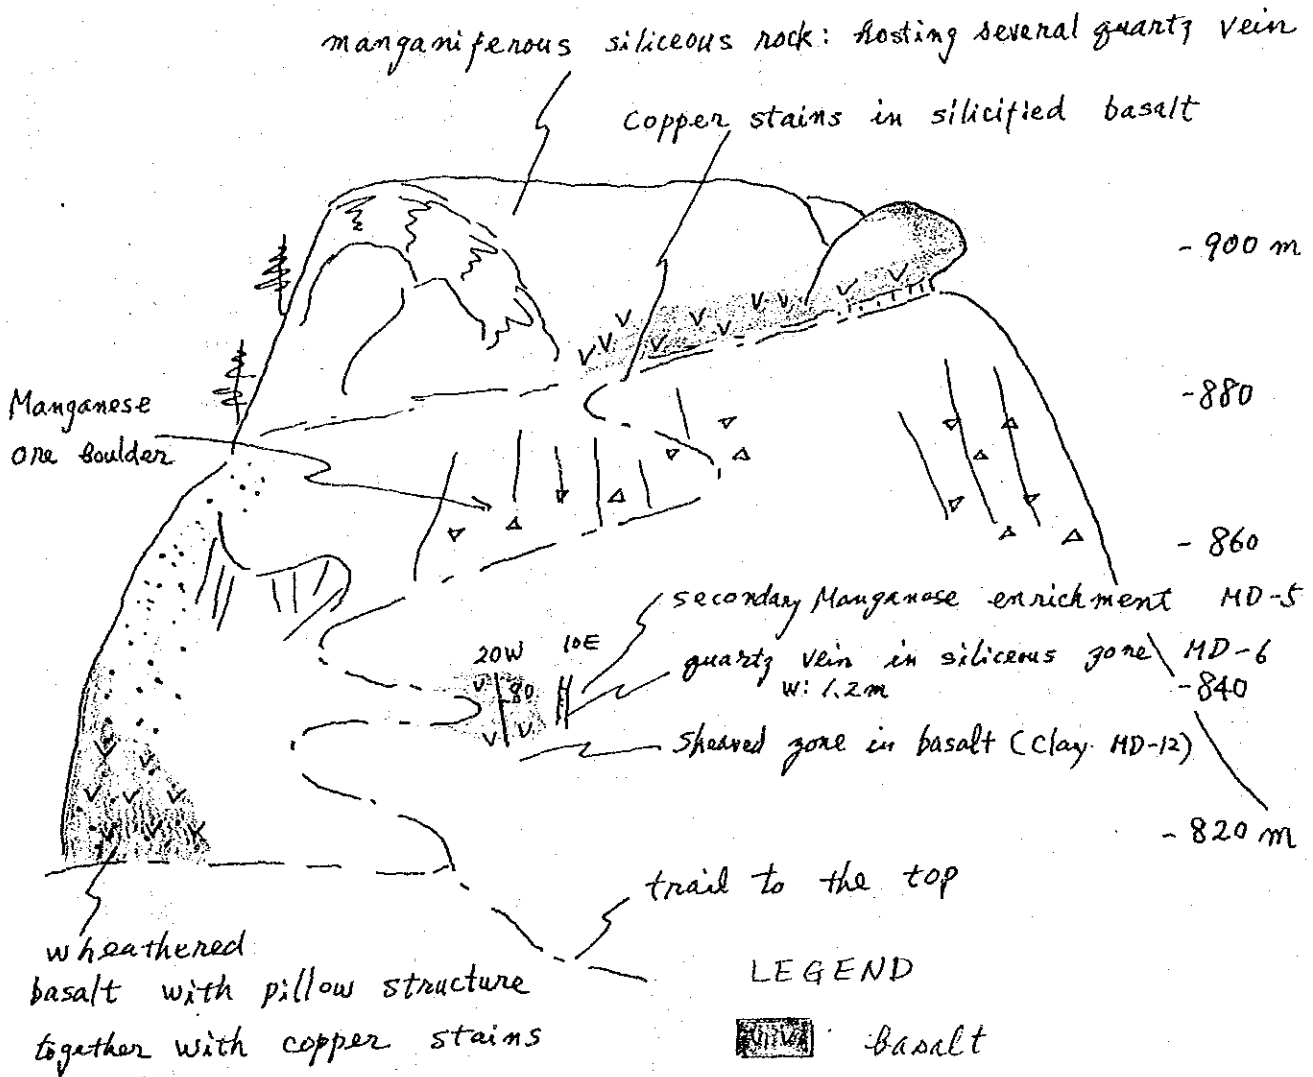 manganiferous siliceous rock: hosting several quartz vein
copper stains in silicified basalt
- 900 m
- 880
Manganese
ore boulder
- 860
secondary Manganese enrichment MD-5
20W 10E
quartz vein in siliceous zone MD-6
80
w: 1.2m
- 840
Sheared zone in basalt (Clay. MD-12)
- 820 m
trail to the top
wheathered
basalt with pillow structure
together with copper stains
LEGEND
basalt